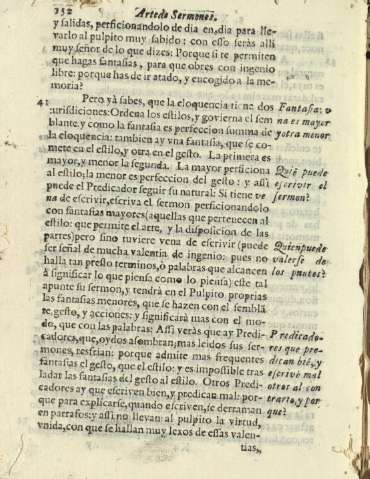 352
Arte de Sermones.
y salidas, perficionandolo de dia en dia para lle-
varlo al pulpito muy sabido: con esso seràs alli
muy señor de lo que dizes: Porque si te permiten
que hagas fantasias, para que obres con ingenio
libre: porque has de ir atado, y encogido a la me-
moria?
41
Pero yà sabes, que la eloquencia tiene dos
jurisdiciones: Ordena los estilos, y govierna el sem
blante. y como la fantasia es perfeccion summa de
la eloquencia: tambien ay vna fantasia, que se co-
mete en el estilo, y otra en el gesto. La primera es
mayor, y menor la segunda. La mayor perficiona
al estilo; la menor es perfeccion del gesto: y assi
puede el Predicador seguir su natural: Si tiene ve
na de escrivir, escriva el sermon perficionandolo
con fantasias mayores (aquellas que pertenecen al
estilo: que permite el arte, y la disposicion de las
partes) pero sino tuviere vena de escrivir (puede
ser señal de mucha valentia de ingenio: pues no
halla tan presto terminos, ò palabras que alcancen
à significar lo que piensa como lo piensa) este tal
apunte su sermon, y tendrà en el Pulpito proprias
las fantasias menores, que se hazen con el semblã
te, gesto, y acciones: y significarà mas con el mo-
do, que con las palabras: Assi veràs que ay Predi-
cadores, que, oydos assombran; mas leidos sus ser-
mones, resfrian: porque admite mas frequentes
fantasias el gesto, que el estilo: y es impossible tras
ladar las fantasias del gesto al estilo. Otros Predi-
cadores ay que escriven bien, y predican mal: por-
que para explicarse, quando escriven, se derraman
en parrafos; y assi no llevan al pulpito la virtud,
vnida, con que se hallan muy lexos de essas valen-
tias,
Fantasia:
na es mayor
y otra menor
Quiẽ puede
escrivir el
sermon?
Quien puede
valerse de
los puntos?
Predicado-
res que pre-
dican biẽ, y
escrivẽ mal
otros al con
trario, y por
que?